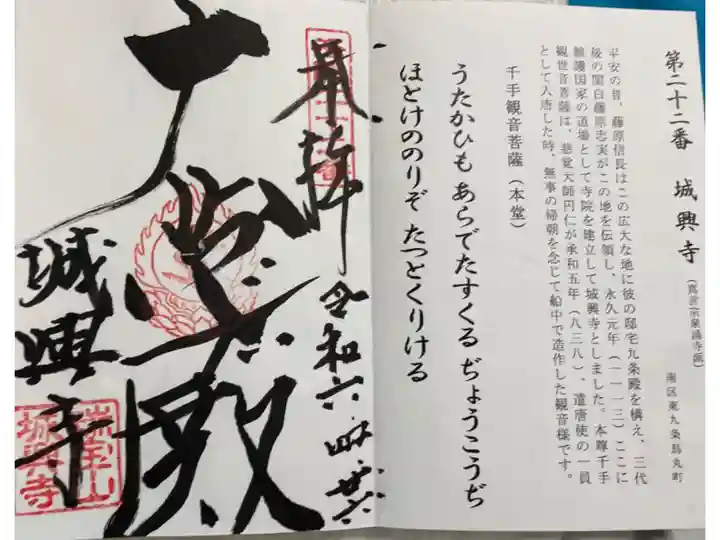 第二十二番 城興寺
(真言宗泉涌寺派)
南区東九条烏丸町
平安の昔、藤原信長はこの広大な地に彼の邸宅九条殿を構え、三代
後の関白藤原忠実がこの地を伝領し、永久元年(一一一三)ここに
鎮護国家の道場として寺院を建立して城興寺としました。本尊千手
観世音菩薩は、慈覚大師円仁が承和五年(八三八)、遣唐使の一員
として入唐した時、無事の帰朝を念じて船中で造作した観音様です。
千手観音菩薩(本堂)
うたがひも あらでたすくる ぢょうこうぢ
ほとけののりぞ たっとくりける
奉拝
令和六
大悲殿
城興寺
瑞宝山
城興寺